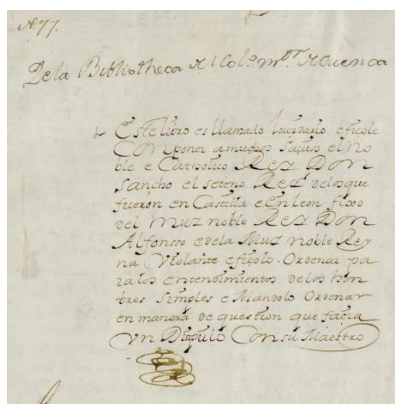 N 77.
De la Bibliotheca del Colem.or de Cuenca
Este libro es llamado Lucidario e fiçole
Componer a muchos Sauios el No
ble e Catholico Rey Don
Sancho el seteno Rey delos que
fueron en Castilla e En leon fijo
del Muy noble Rey Don
Alfonsso e dela Muy noble Rey
na Violante e fiçolo Ordenar pa
ra los entendimientos delos hom
bres Simples e Mandolo Ordenar
en manera de question que facia
Un Diçipulo Con su Maestro